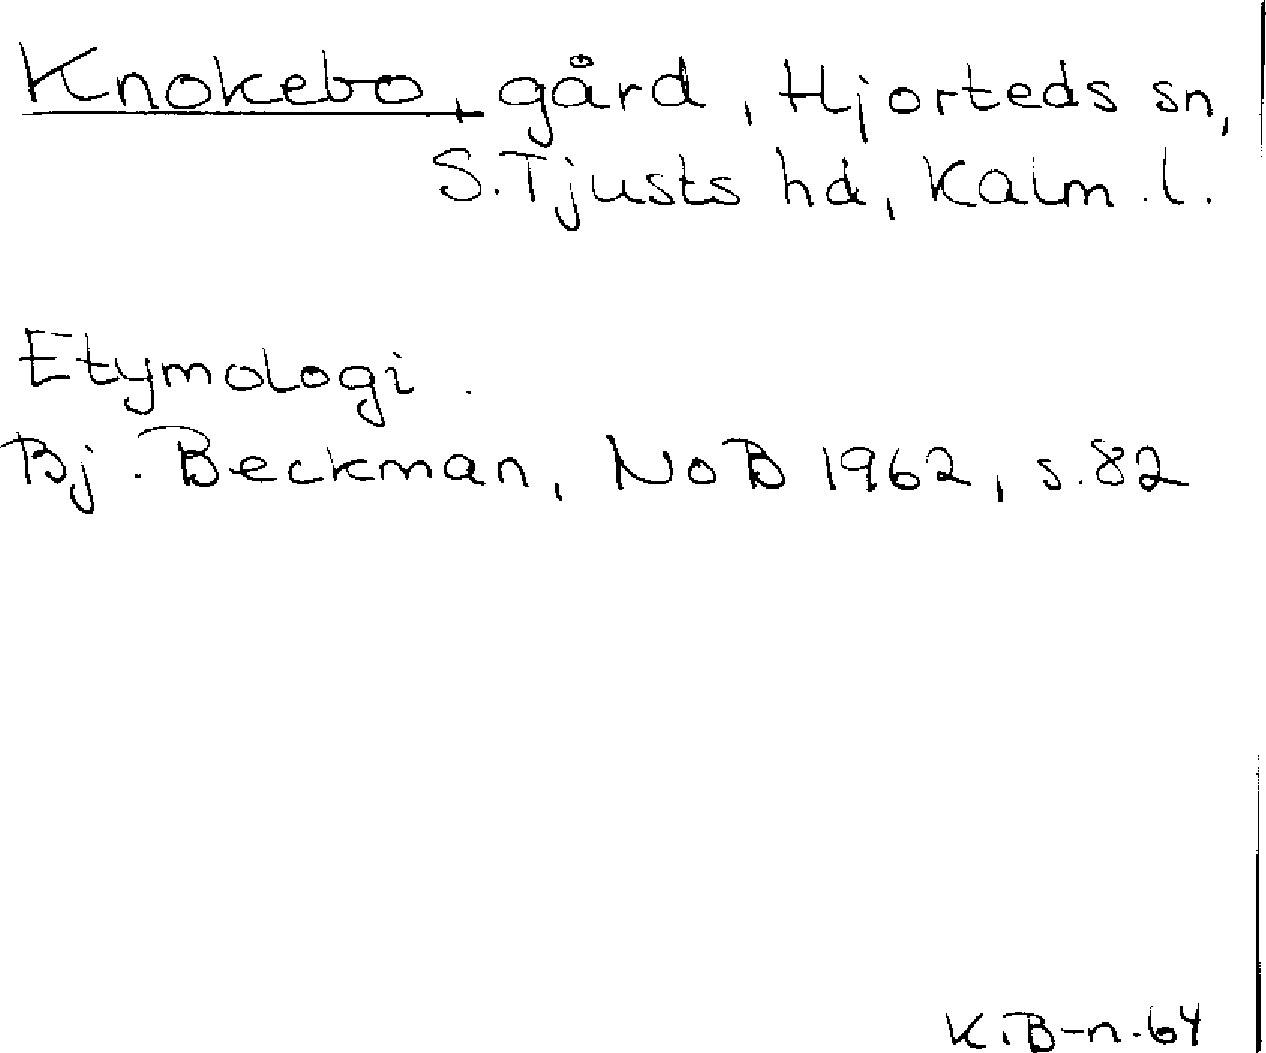 Knokebo, gård, Hjorteds sn,
S. Tjusts hd, Kalm. l.
Etymologi.
Bj. Beckman, NoB 1962, s. 82
K.B-n. 64